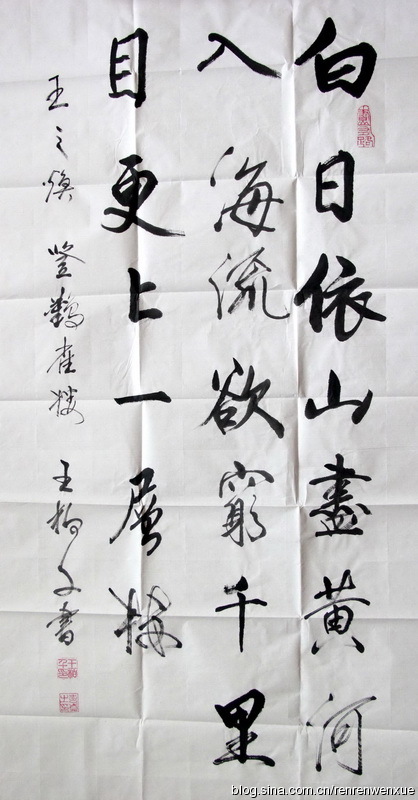 白日依山盡黄河
入海流欲窮千里
目更上一層楼
王之煥 登鸛雀楼 王柏文書
blog.sina.com.cn/renrenwenxue